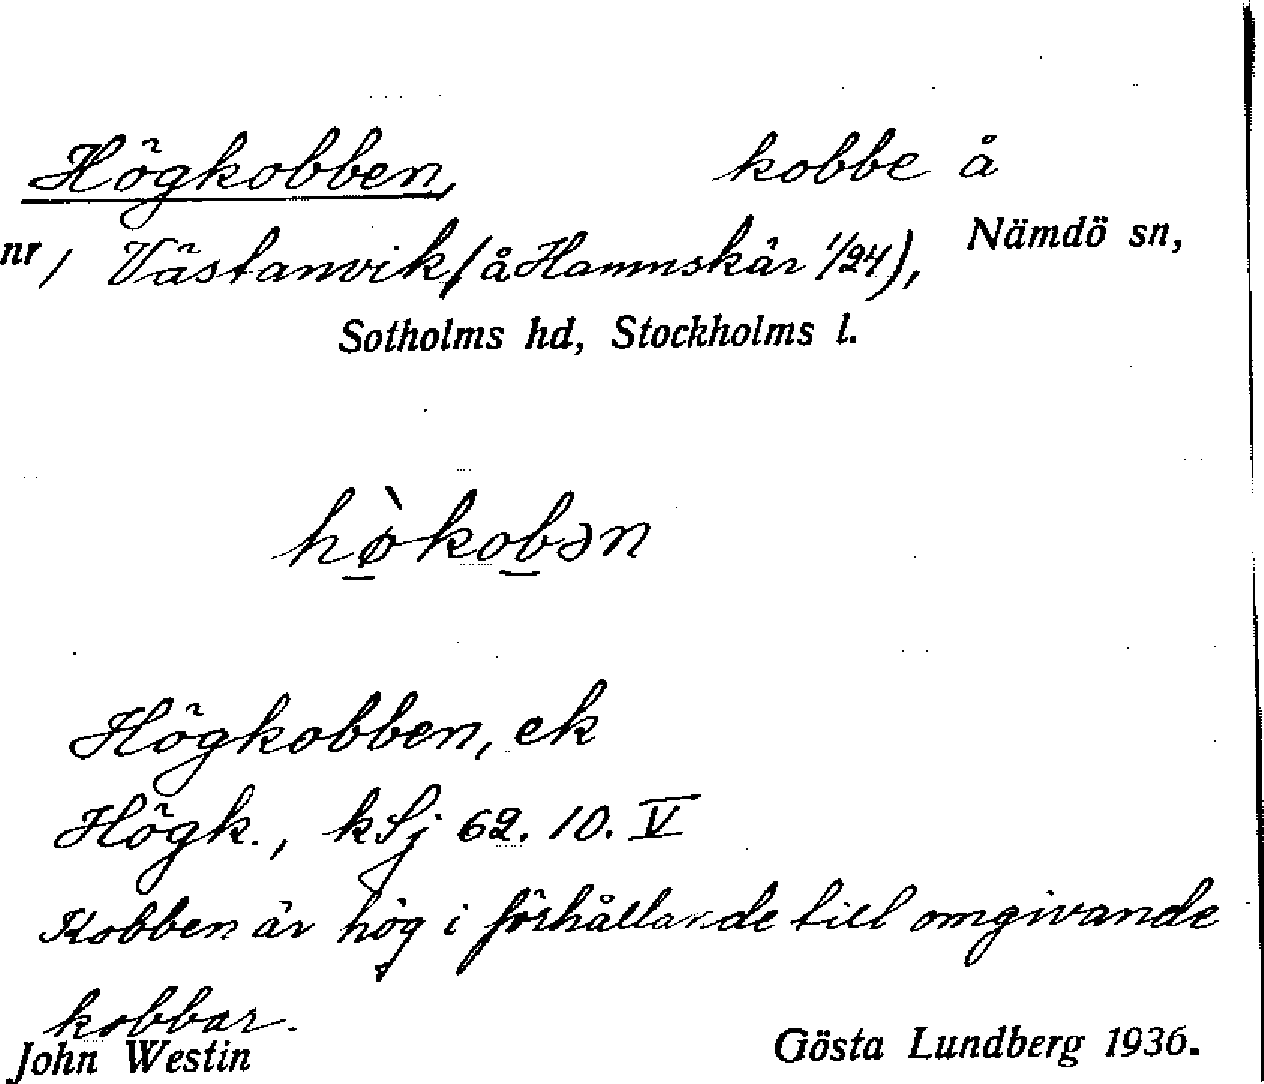 Högkobben, kobbe å
nr, Västanvik (å Hamnskär 1/24), Nämdö sn,
Sotholms hd, Stockholms l.
hø̀kobən
Högkobben, ek
Högk., kSj 62. 10. V
Kobben är hög i förhållande till omgivande
kobbar.
John Westin Gösta Lundberg 1936.